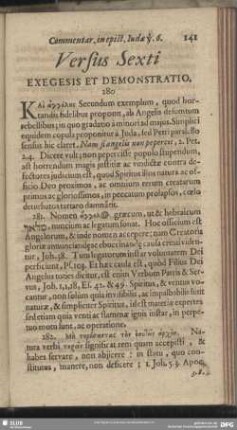 Commentar. in epist. Judæ ℣. 6. 141
Versus Sexti
EXEGESIS ET DEMONSTRATIO.
280
KAì ἀγγέλους Secundum exemplum, quod hor-
tandis fidelibus proponit, ab Angelis desumtum
rebellibus; in quo gradatio à minori ad majus. Simplici
equidem copulâ proponitur à Juda, sed Petri parallelo
sensus hic claret. Nam si angelis non pepercit; 2. Pet.
2. 4. Dicere vult; non pepercisse populo stupendum,
est horrendum magis justitiæ ac vindictæ contra de-
fectores judicium est, quod Spiritus illius natura ac of-
ficio Deo proximos, ac omnium rerum creatarum
primas ac gloriosissimos, in peccatum prolapsos, cœlo
deturbatos tartaro damnârit.
281. Nomen græcum, ut & hebraicum
nuncium ac legatum sonat. Hoc officium est
Angelorum, & inde nomen accepere; nam Creatoris
gloriæ annunciandæ
Job. 38. Tum legatorum instar voluntatem Dei
perficiunt, Ps. 103. Et hac causâ est, quod Filius Dei
Angelus toties dicitur, est enim Verbum Patris & Ser-
vus, Joh. 1, 1, 18, Es. 42. & 49. Spiritus, & ventus vo-
cantur, non solum quia invisibiles, ac impassibiles sint
naturæ, & simpliciter Spiritus, id est materia expertes
sed etiam quia venti ac flammæ ignis instar, in perpe-
tuo motu sunt, ac operatione.
282. Μὴ τηρήσαντας τὴν ἑαυτῶν ἀρχὴν. Na-
tura verbi τηρεῖν significat rem quam accepisti, &
habes servare, non abjicere: in statu, quo con-
stitutus, manere, non deficere; 1. Joh. 5. 9. Apoc.